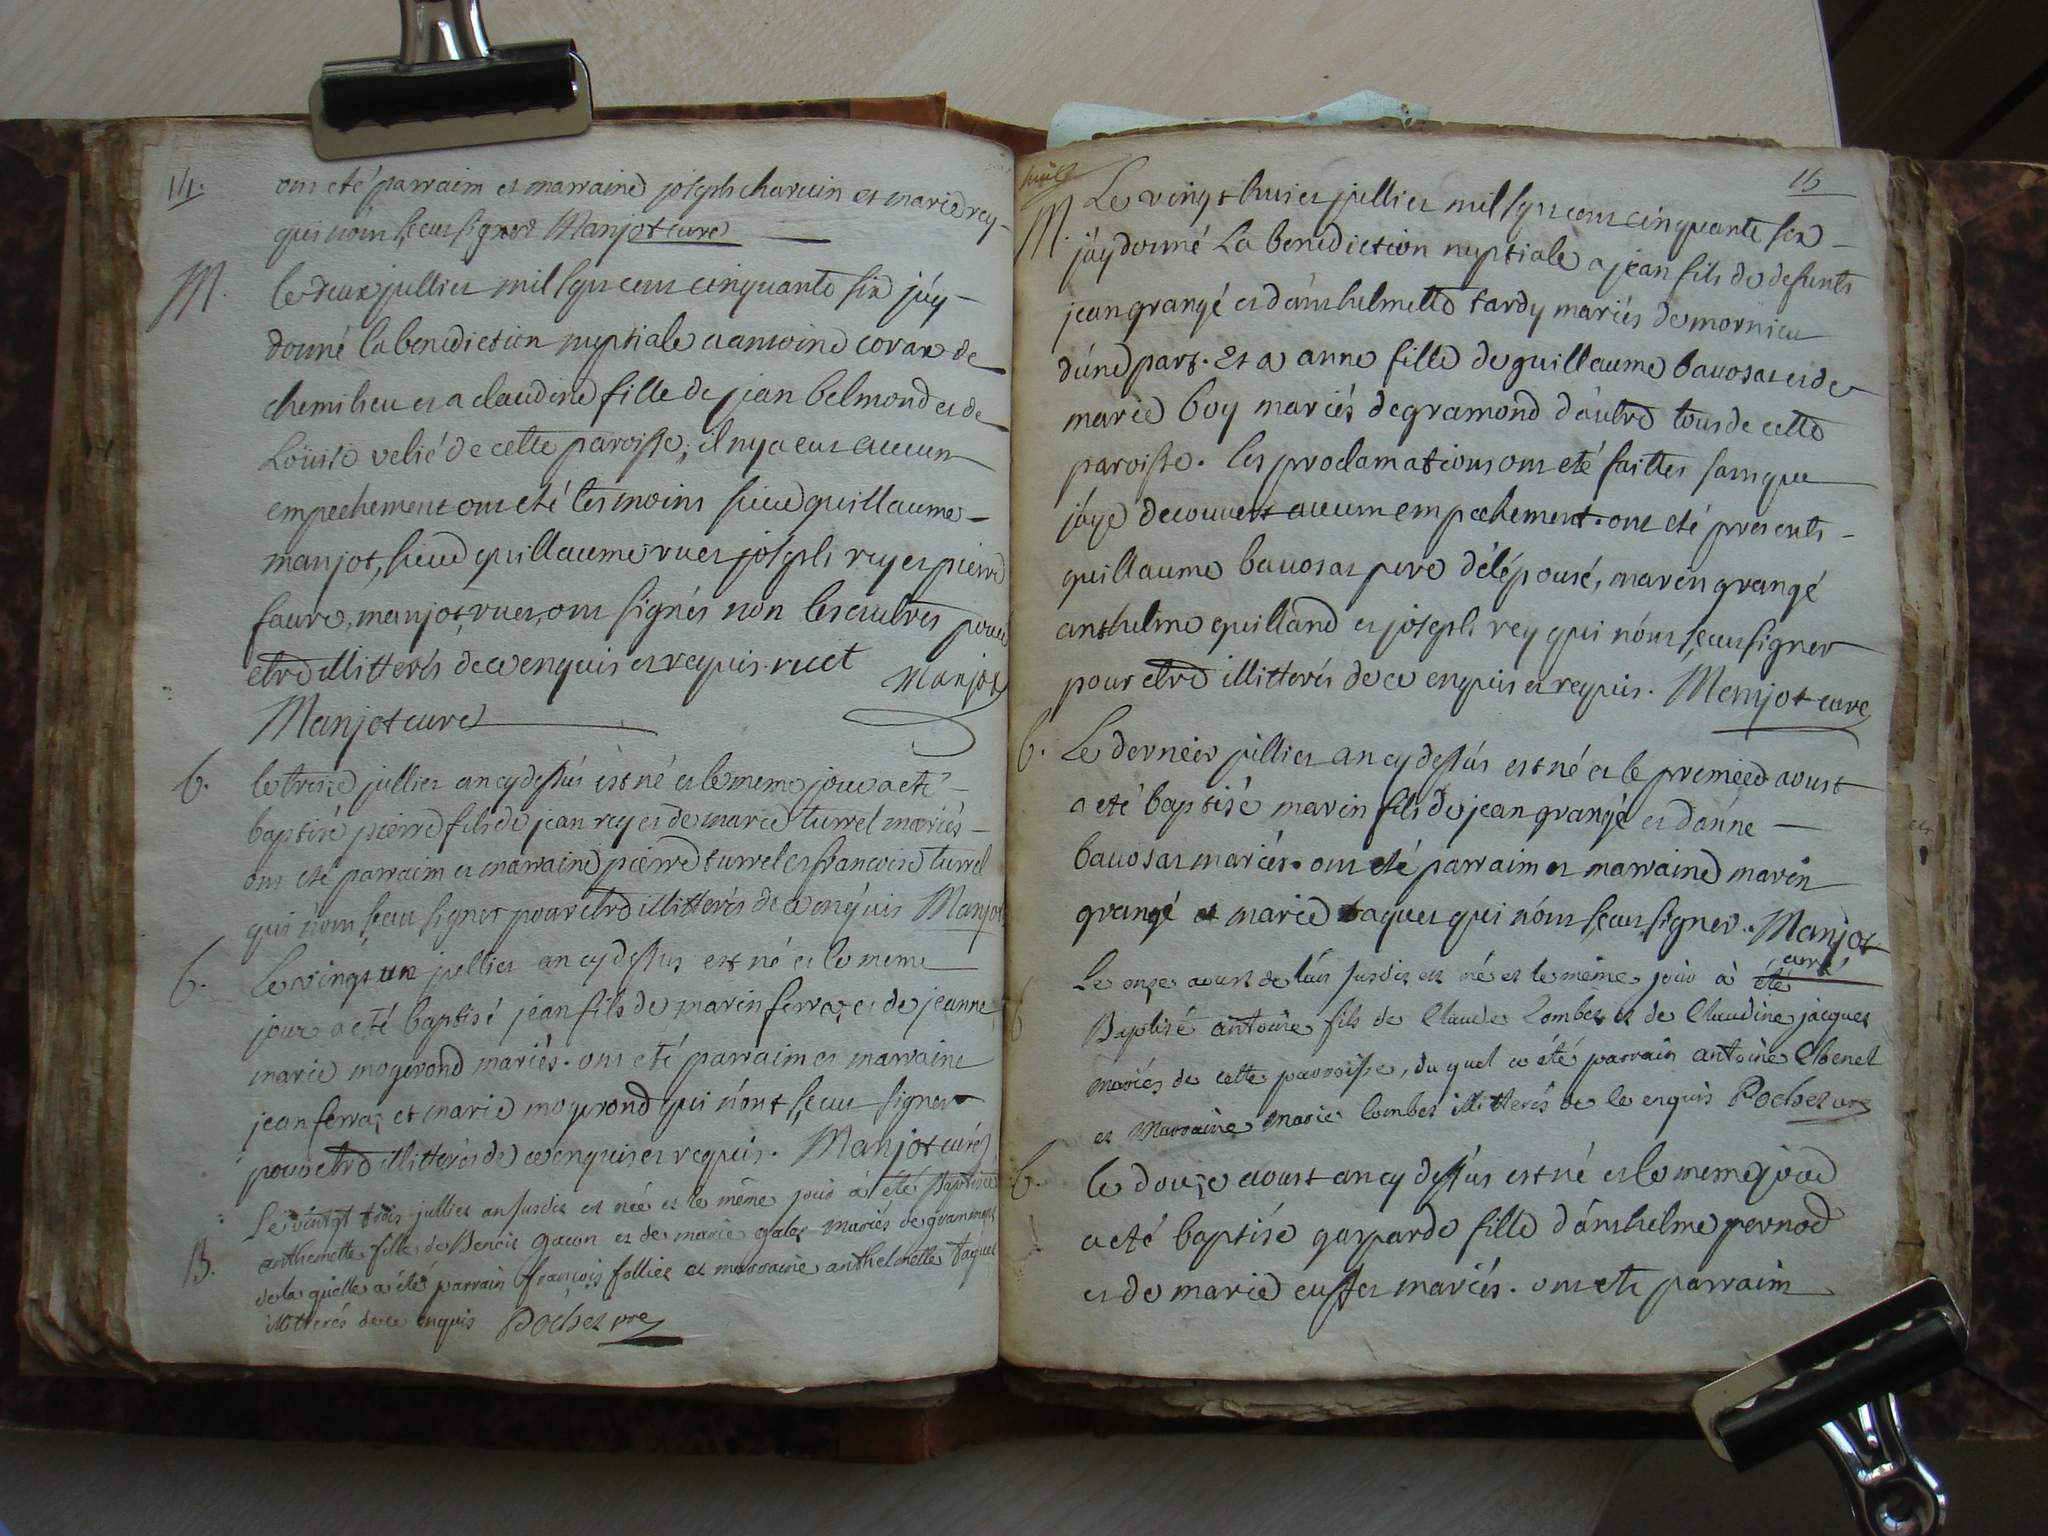 14.
ont eté parraim et marraine joseph charvin et marie rey
qui nóm sceu signer Manjot curé
M.
le deux jullier mil sept cens cinquante six jáy
donné la benediction nuptiale a antoine corax de
chemilieu et a claudine fille de jean belmond et de
Loüise velié de cette paroisse; il ny a eut aucun
empechement ont eté tesmoins sieur guillaume
manjot, sieur guillaume ruet joseph rey et pierre
faure, manjot, ruet, ont signés non les autres pour
etre illitterés de ce enquis et requis. ruet Manjot
Manjot curé
b.
le treize jullier an cy dessús est né et le meme jour a eté
baptisé pierre fils de jean rey et de marie turrel mariés
ont eté parraim et marraine pierre turrel et francoise turrel
qui nóm sceu signer pour etre illitterés de ce enquis Manjot
b.
Le vingt un jullier an cy dessus est né et le meme
jour a eté baptisé jean fils de marin ferraz et de jeanne
marie mogerond mariés. ont eté parraim et marraine
jean ferraz et marie mogerond qui nónt sceu signer
pour etre illitterés de ce enquis et requis. Manjot curé
B.
Le vintgt trois jullier an susdit est née et le même jour à été Baptisée
anthemette fille de Benoit gacon et de marie galet mariés de grammont
de la quelle a été parrain françois follier et marraine anthelmette taquet
illitterés de ce enquis Pochet vre
suite
15
M.
Le vingt huiet jullier mil sept cens cinquante six
jáy donné La benediction nuptiale a jean fils de defunts
jean grangé et dánthelmette tardy mariés de mornieu
dúne part. Et a anne fille de guillaume bavosat et de
marie boy mariés de gramond dáutre tous de cette
paroisse. les proclamations ont eté faittes sans que
jáye decouvert aucun empechement. ont eté presents
guillaume bavosat pere délépousé, marin grangé
anthelme guilland et joseph rey qui nónt sceu signer
pour etre illitterés de ce enquis et requis. Manjot curé
b.
Le dernier jüllier an cy dessús est né et le premier aoust
a eté baptisé marin fils de jean grangé et dánne
bavosat mariés. ont eté parraim et marraine marin
grangé et marie taquet qui nónt sceu signer. Manjot
curé
b
Le onze aoust de lán susdit est né et le même jour à été
Baptisé antoine fils de Claude Lombet et de Claudine jacquet
mariés de cette parroisse, du quel a été parrain antoine Chenet
et Marraine marie lombet illitterés de ce enquis Pochet vre
b.
le douze aoust an cy dessús est né et le meme jour
a eté baptisé gasparde fille dánthelme pernod
et de marie eusser mariés. ont eté parraim